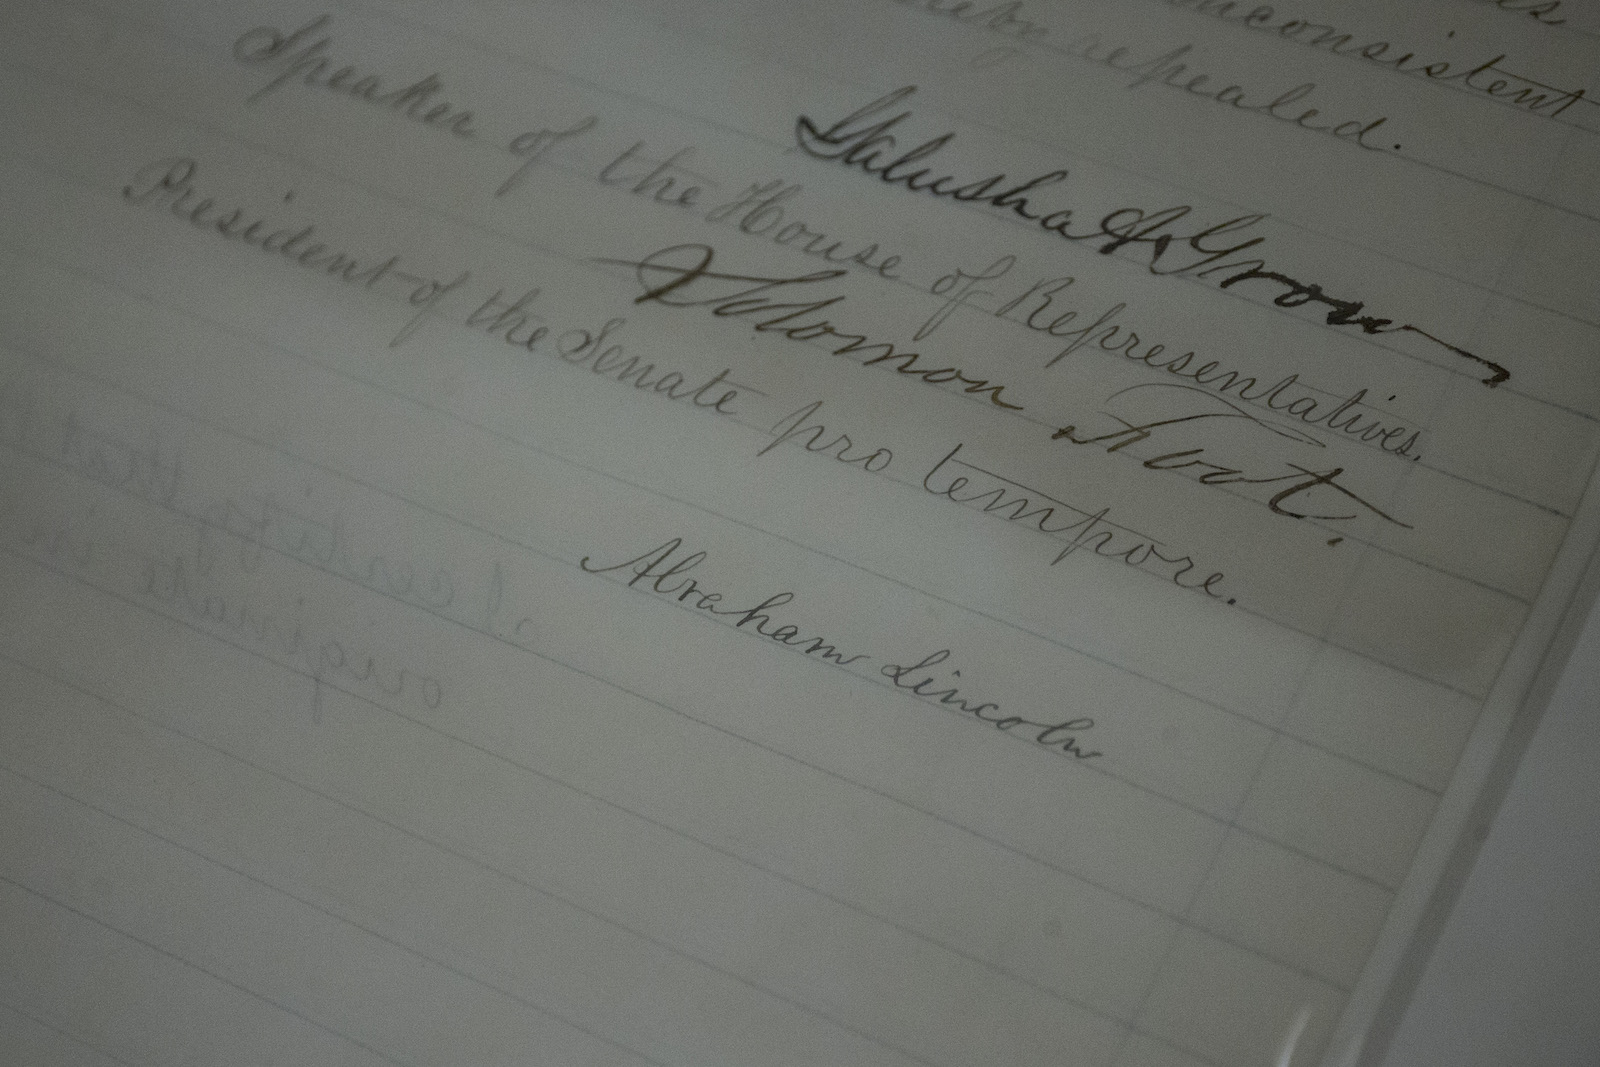 inconsistent
hereby repealed.
Galusha A. Grow
Speaker of the House of Representatives.
Solomon Foot.
President of the Senate pro tempore.
Abraham Lincoln
I certify that
originate in